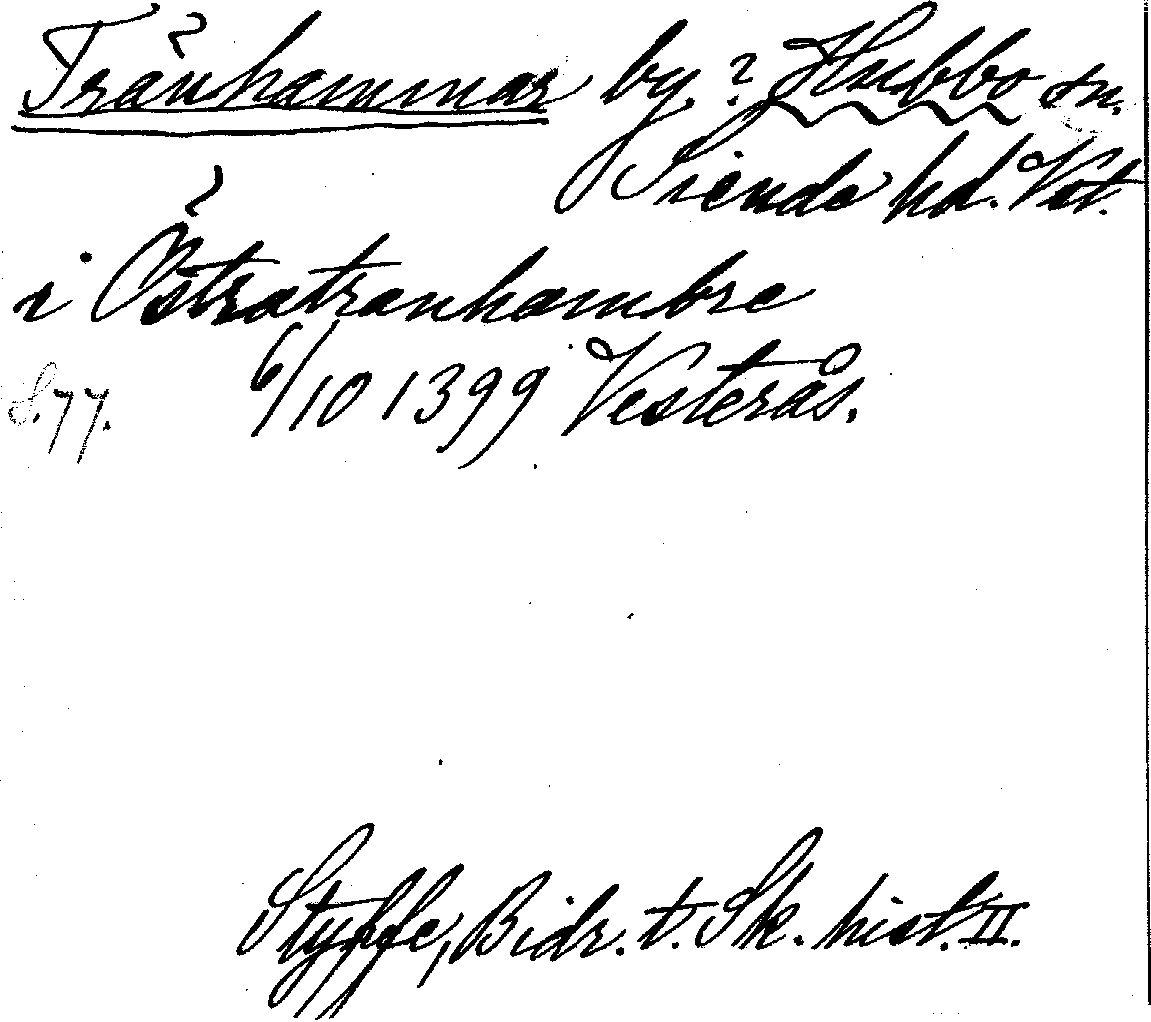 Trånhammar by? Hubbo sn.
Siende hd. Vst.
i Östratranhambre
S. 77. 6/10 1399 Vesterås.
Styffe, Bidr. t. Sk. hist. II.